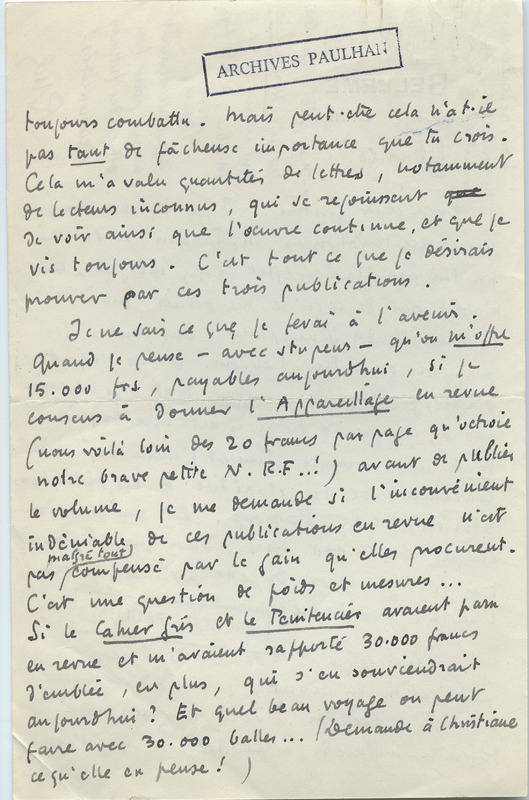 ARCHIVES PAULHAN
toujours combattu. Mais peut-être cela n'a-t-il
pas tant de fâcheuse importance que tu crois.
Cela m'a valu quantités de lettres, notamment
de lecteurs inconnus, qui se réjouissent que
de voir ainsi que l'œuvre continue, et que je
vis toujours. C'est tout ce que je désirais
prouver par ces trois publications.
Je ne sais ce que je ferai à l'avenir.
Quand je pense – avec stupeur – qu'on m'offre
15.000 frs, payables aujourd'hui, si je
consens à donner l'Appareillage en revue
(nous voilà loin des 20 francs par page qu'octroie
notre brave petite N.R.F...!) avant de publier
le volume, je me demande si l'inconvénient
indéniable de ces publications en revue n'est
pas malgré tout compensé par le gain qu'elles procurent.
C'est une question de poids et mesures...
Si le Cahier Gris et le Pénitencier avaient paru
en revue et m'avaient rapporté 30.000 francs
d'emblée, en plus, qui s'en souviendrait
aujourd'hui? Et quel beau voyage on peut
faire avec 30.000 balles... (Demande à Christiane
ce qu'elle en pense!)